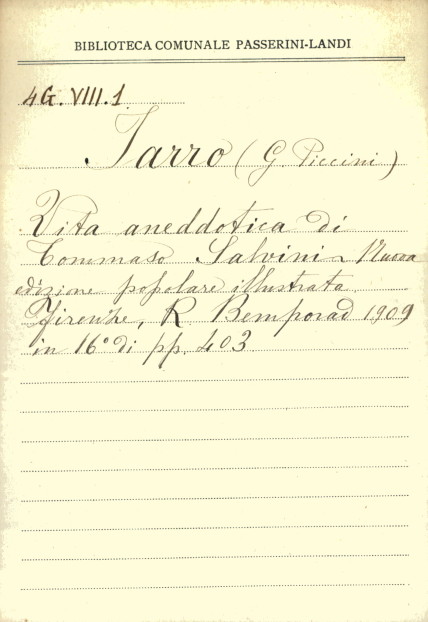 BIBLIOTECA COMUNALE PASSERINI-LANDI
4G. VIII. 1.
Jarro (G. Piccini)
Vita aneddotica di
Tommaso Salvini - Nuova
edizione popolare illustrata
Firenze, R Bemporad 1909
in 16° di pp. 403